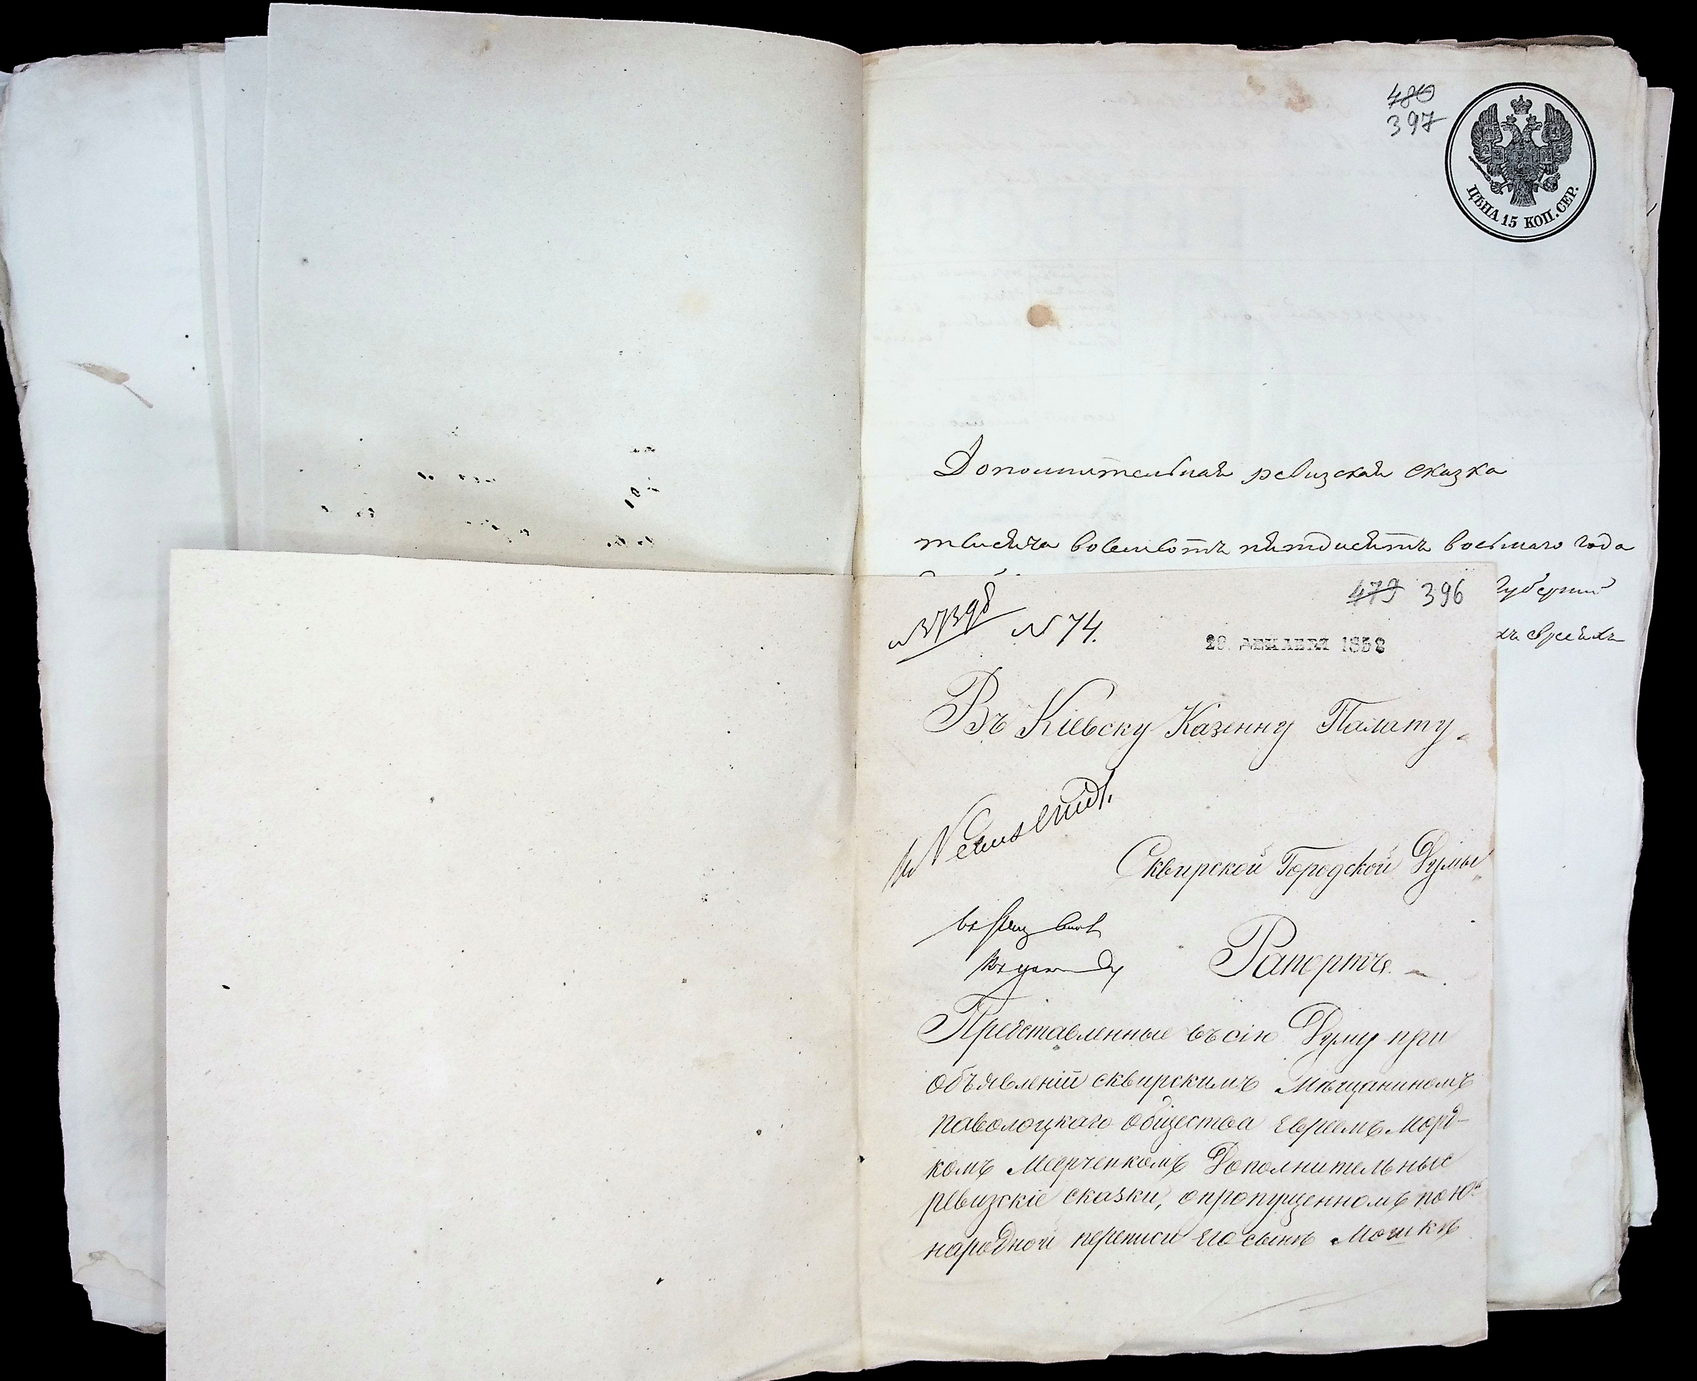 480
397
ЦѢНА 15 КОП. СЕР.
Дополнительная ревизская сказка
тысяча восемьсотъ пятьдесятъ восьмаго года
губерніи
евреяхъ
479 396
N 74.
29. ДЕКАБРЯ 1858
Въ Кіевску Казенну Палату
Сквирской Городской Думы
Рапортъ.
Представленные въ сію Думу при
объявленій сквирскимъ мѣщаниномъ
паволоцкаго общества евреемъ Морд-
комъ Меерченкомъ Дополнительные
ревизскіе сказки, о пропущенномъ по 10й
народной переписи его сынѣ Мошкѣ